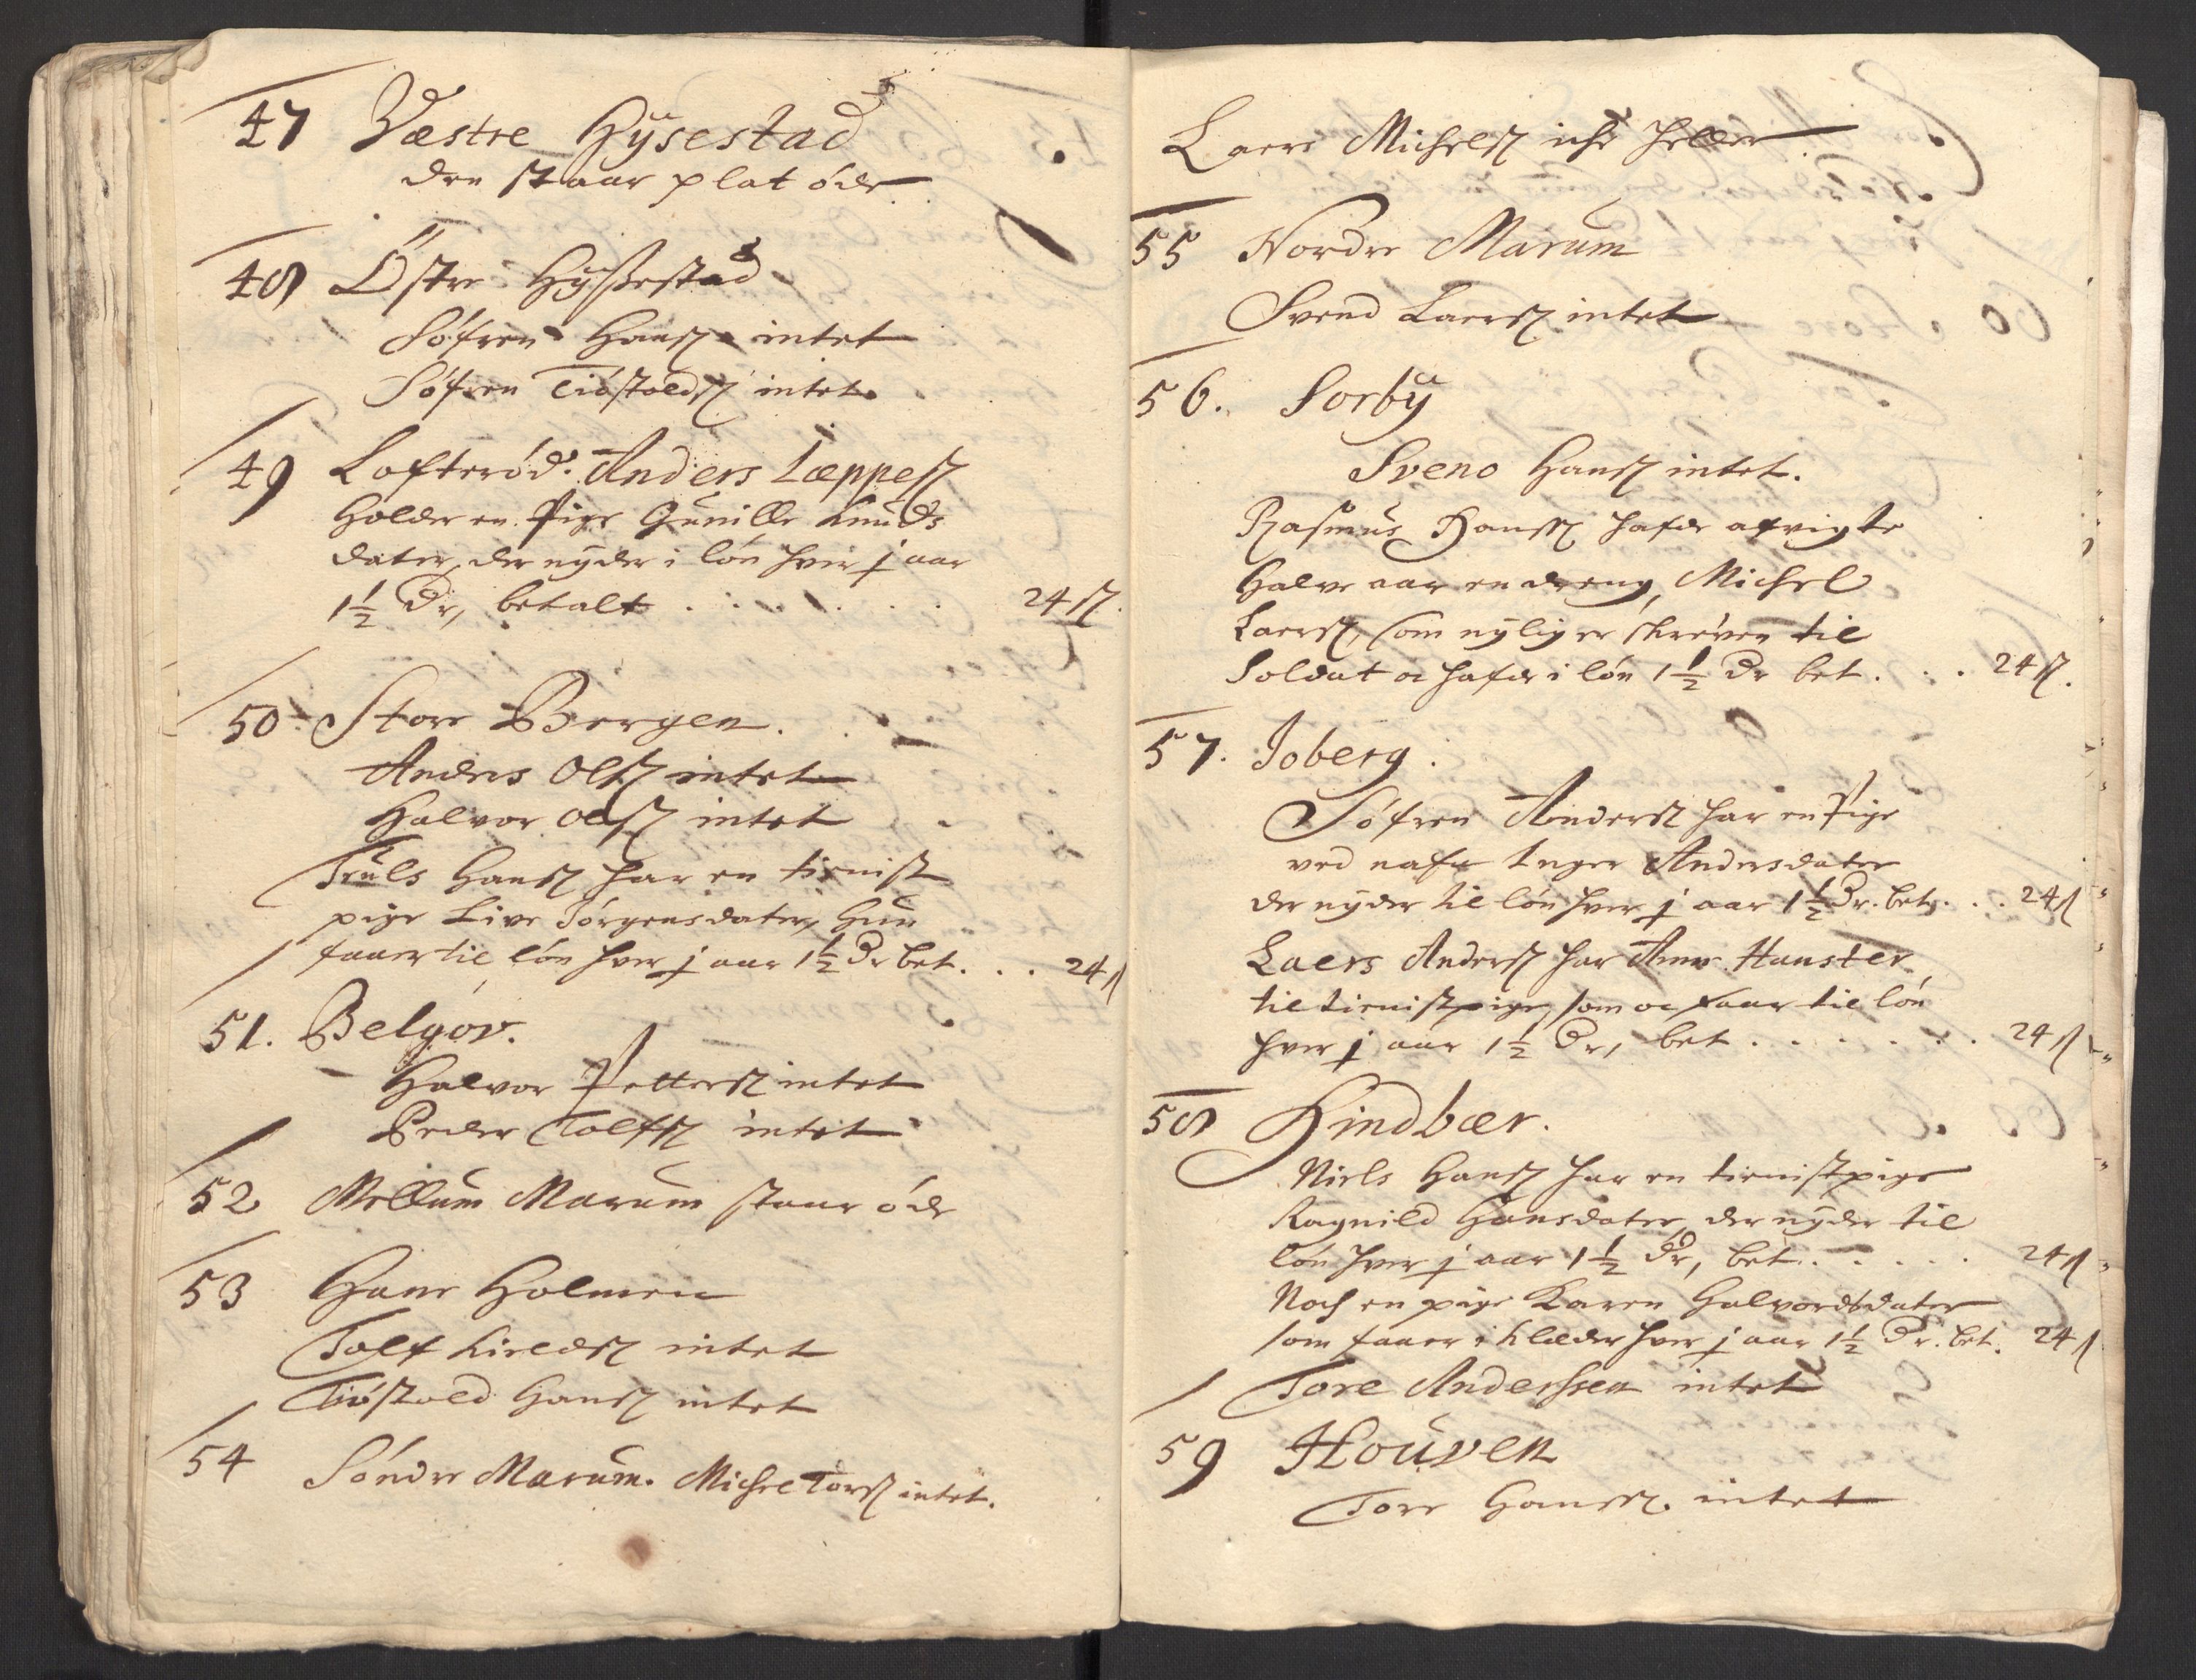 47 Væstre Hÿsestad
den staar plat öde
48 Östre Hÿssestad
Söfren Hanss. intet
Söfren Tiöstoldss. intet
49 Lofteröd. Anders Læppess.
Holder en Pige Gunille Knuds
dater, der nÿder i lön hver j aar
1½ Dr, betalt . . . . . . 24 ß.
50 Store Bergen.
Anders Olss. intet
Halvor Olss. intet
Truls Hanss. har en tienist
pige Live Jörgensdater, Hun
faaer til lön hver j aar 1½ Dr bet. . . 24 ß
51. Belgov.
Halvor Petterss. intet
Peder Tolfss. intet
52 Mellum Marum staar öde
53 Hans Holmen
Tolf Lieldss. intet
Tiöstold Hanss. intet
54 Söndre Marum. Michel Torss. intet.
Laers Michelss. icke heller
55 Nordre Marum
Svend Laerss. intet
56. Sorbÿ
Sveno Hanss. intet.
Rasmus Hanss. hafde afvigte
halve aar en dreng, Michel
Laerss, som nÿlig er skreven til
Soldat oc hafde i lön 1½ Dr bet. . . 24 ß.
57. Joberg.
Söfren Anderss. har en Pige
ved nafn Inger Andersdater
der nÿder til lön hver j aar 1½ Dr. bet. . . 24 ß
Laers Anderss. har Anne Hanster
til tienistpige, som oc faaer til lön
hver j aar 1½ Dr, bet . . . . . . 24 ß
58 Hindbær.
Niels Hanss. har en tienistpige
Ragnild Hansdater, der nÿder til
lön hver j aar 1½ Dr, bet. . . . . 24 ß
Noch en pige Karen Halvordsdater
som faaer i klæder hver j aar 1½ Dr. bet. 24 ß
Tore Anderssen intet
59 Houven
Tore Hanss. intet